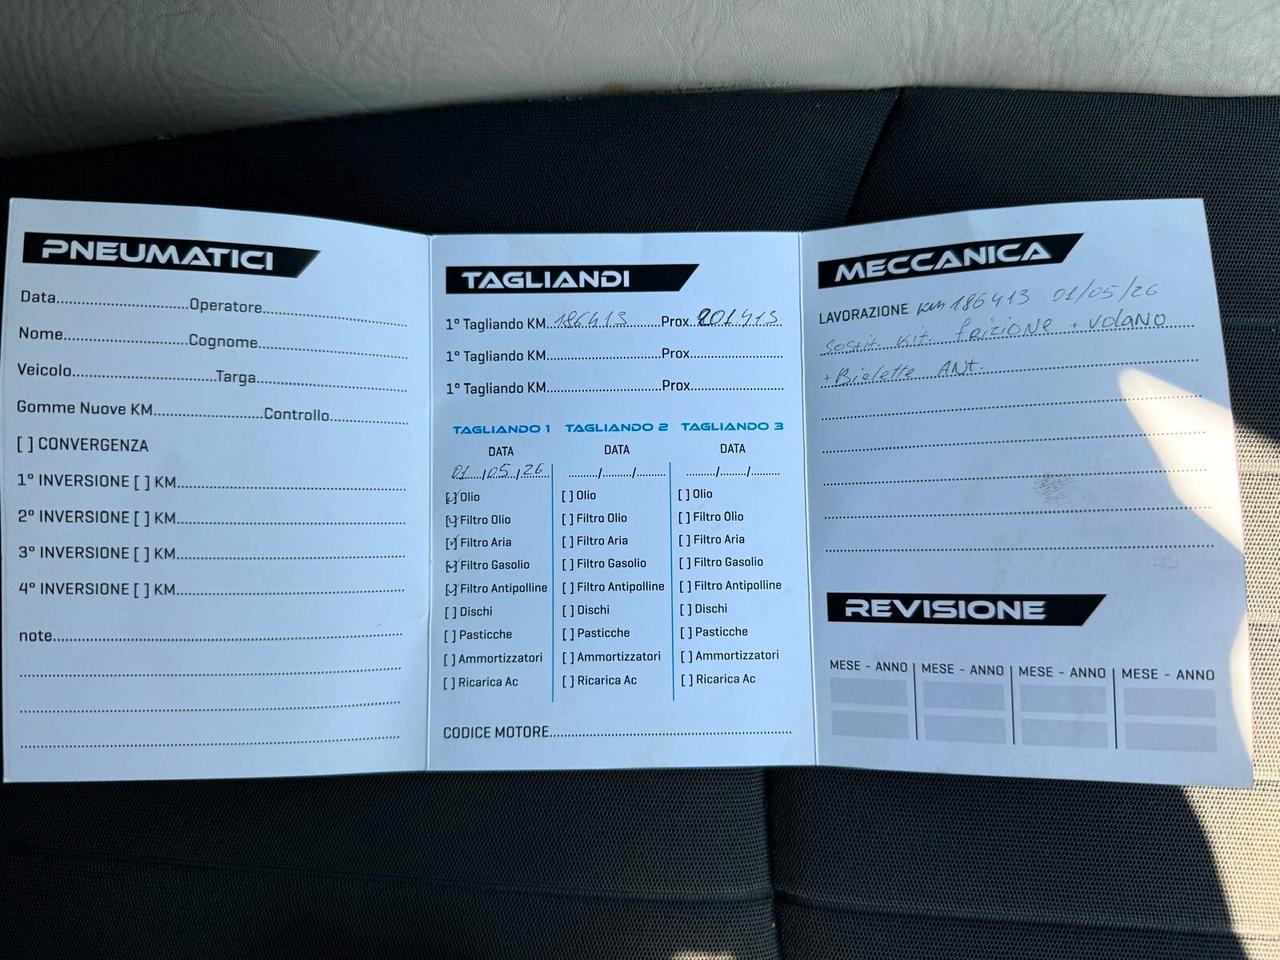 PNEUMATICI
Data..............................Operatore................................
Nome............................Cognome................................
Veicolo................................Targa.................................
Gomme Nuove KM........................Controllo.................
[ ] CONVERGENZA
1° INVERSIONE [ ] KM.................................................
2° INVERSIONE [ ] KM.................................................
3° INVERSIONE [ ] KM.................................................
4° INVERSIONE [ ] KM.................................................
note.................................................................
TAGLIANDI
1° Tagliando KM 186413 Prox. 201413
1° Tagliando KM..........................Prox......................
1° Tagliando KM..........................Prox......................
TAGLIANDO 1 TAGLIANDO 2 TAGLIANDO 3
DATA DATA DATA
01/05/26 ......../......../........ ......../......../........
[✓] Olio [ ] Olio [ ] Olio
[✓] Filtro Olio [ ] Filtro Olio [ ] Filtro Olio
[✓] Filtro Aria [ ] Filtro Aria [ ] Filtro Aria
[✓] Filtro Gasolio [ ] Filtro Gasolio [ ] Filtro Gasolio
[✓] Filtro Antipolline [ ] Filtro Antipolline [ ] Filtro Antipolline
[ ] Dischi [ ] Dischi [ ] Dischi
[ ] Pasticche [ ] Pasticche [ ] Pasticche
[ ] Ammortizzatori [ ] Ammortizzatori [ ] Ammortizzatori
[ ] Ricarica Ac [ ] Ricarica Ac [ ] Ricarica Ac
CODICE MOTORE.................................................
MECCANICA
LAVORAZIONE Km 186413 01/05/26
Sostit. Kit. frizione + volano
+ Bielette ANT.
REVISIONE
MESE - ANNO MESE - ANNO MESE - ANNO MESE - ANNO